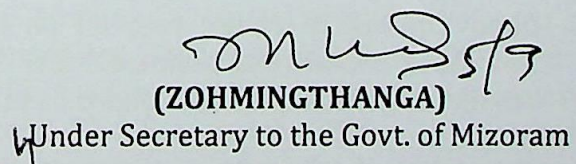 5/9
(ZOHMINGTHANGA)
Under Secretary to the Govt. of Mizoram